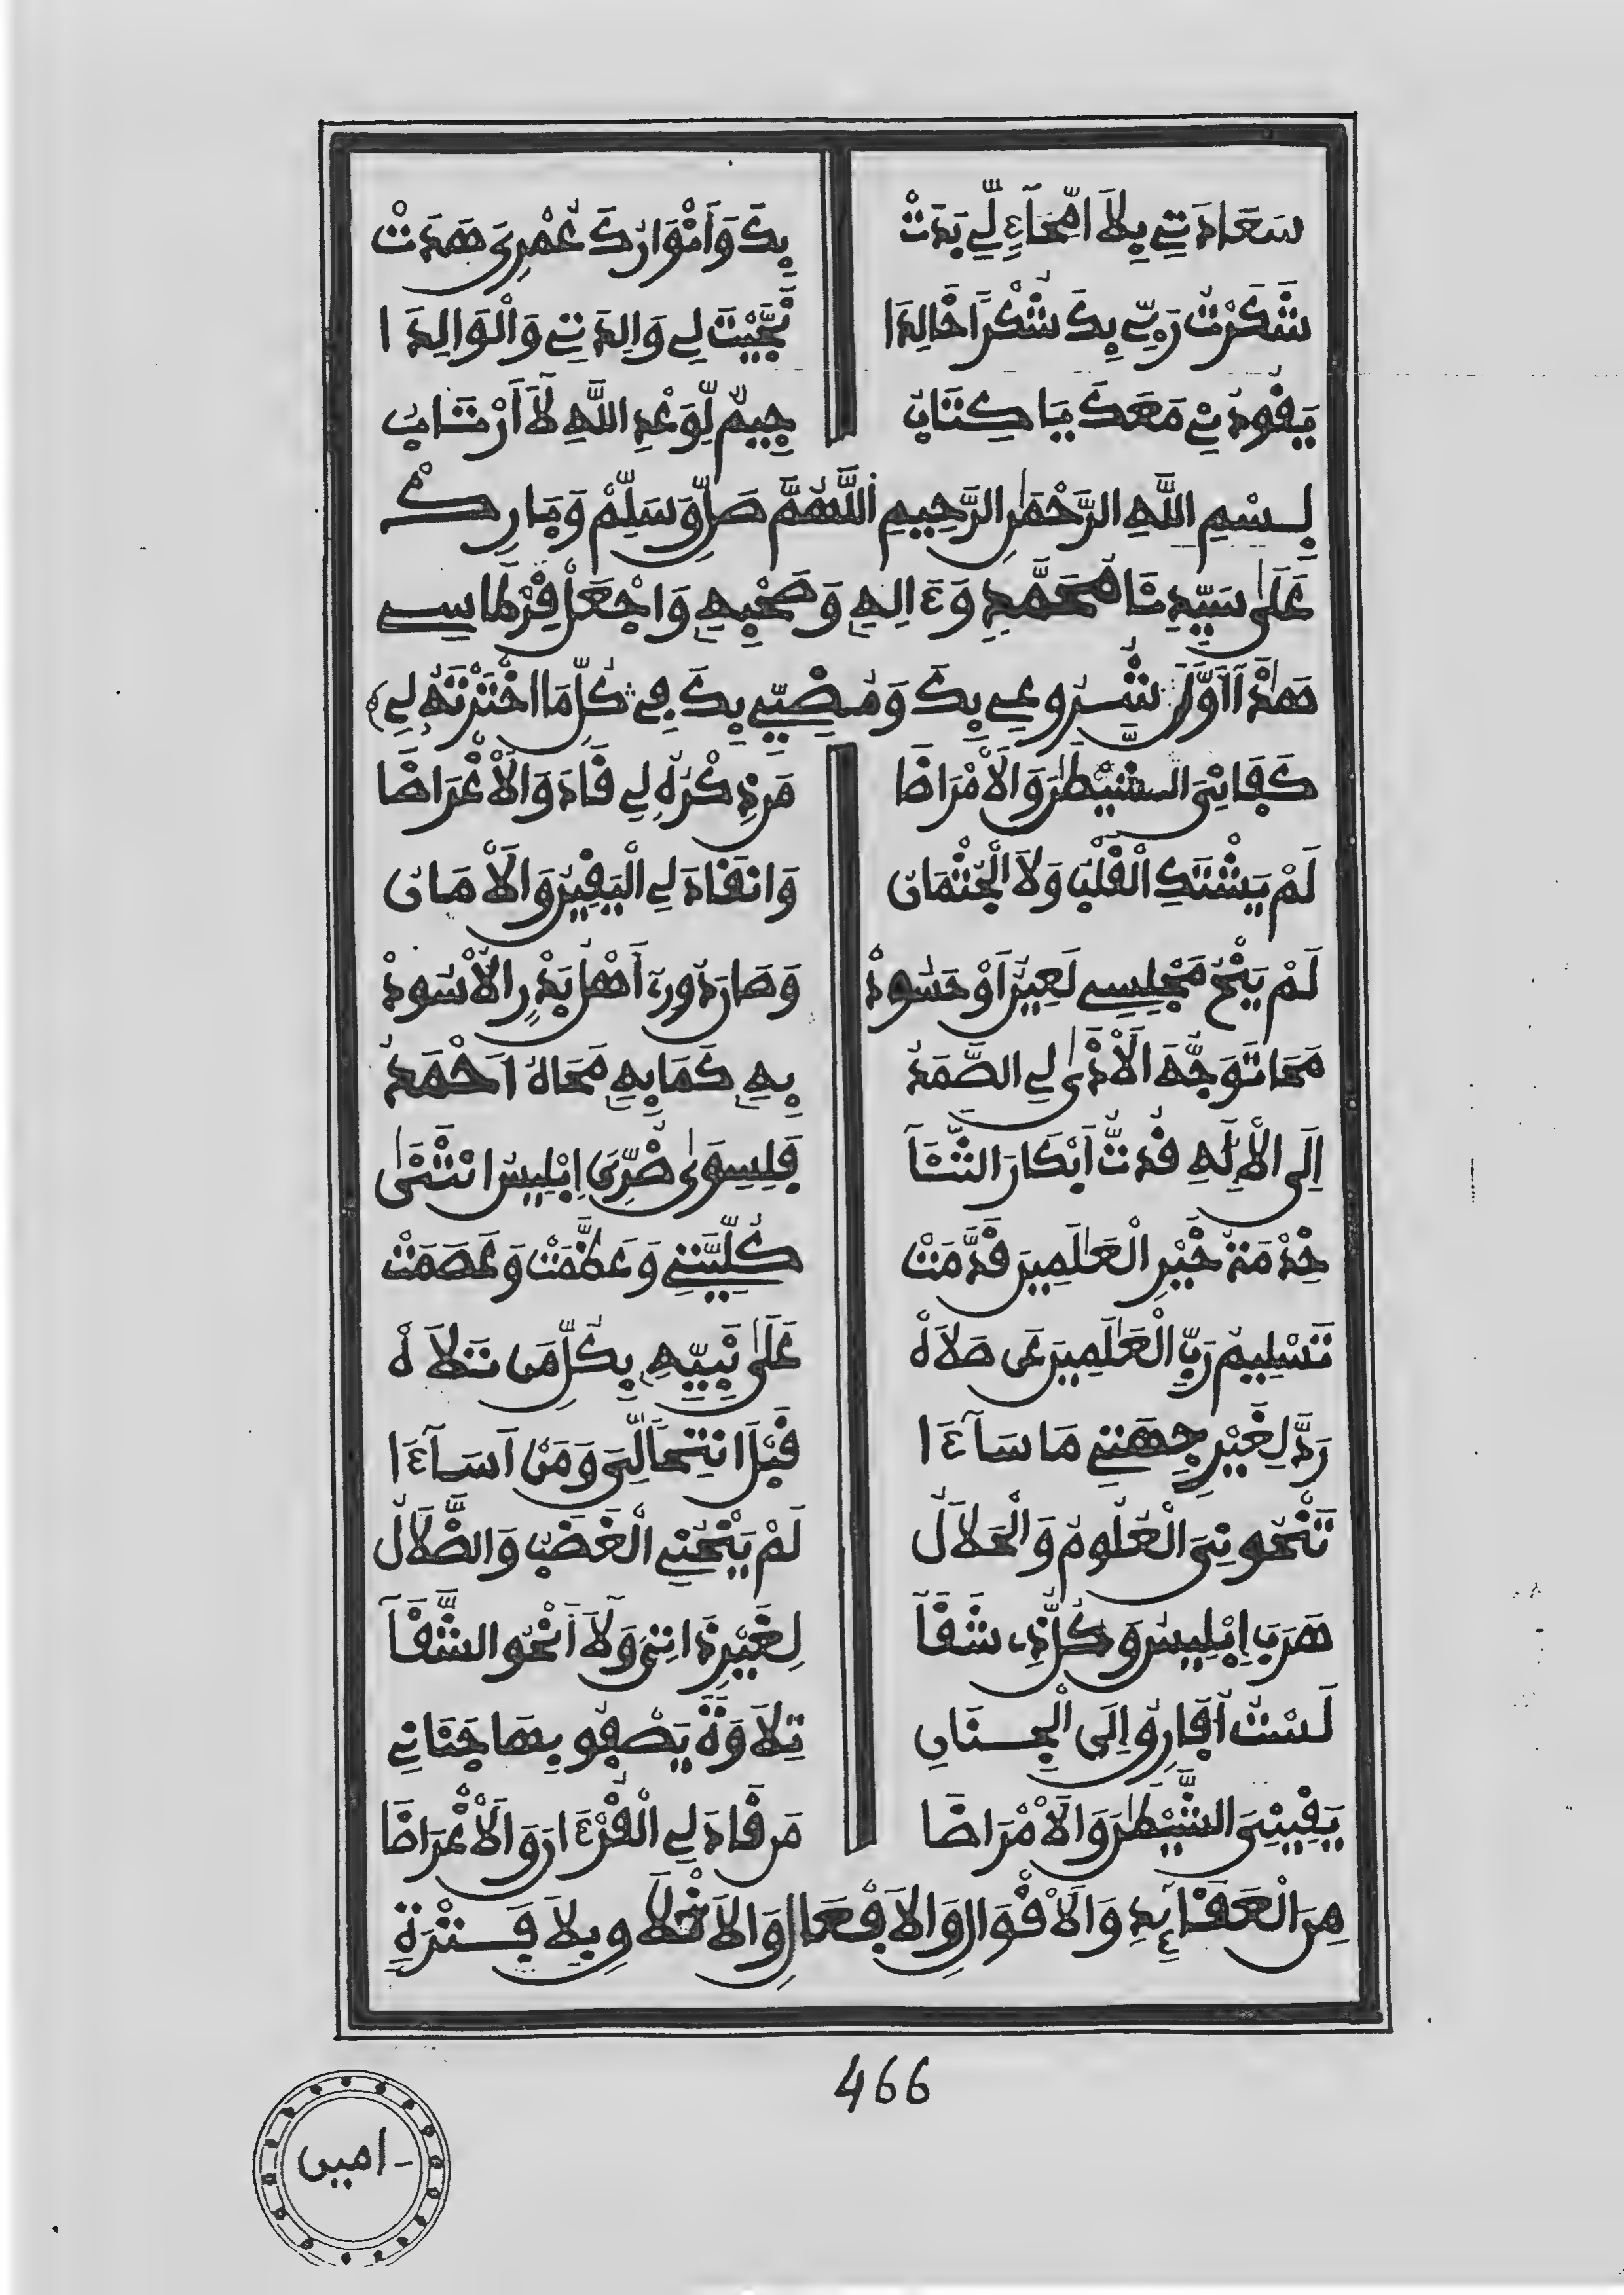 سَعَادَتِي بِلَا امِّحَاءٍ لِّي بَدَتْ بِكَ وَأَنْوَارُكَ عُمْرِي هَدَتْ
شَكَرْتُ رَبِّي بِكَ شُكْرًا خَالِدَا نَجَّيْتَ لِي وَالِدَتِي وَالْوَالِدَا
يَقُودُنِي مَعَكَ يَا كِتَابُ جِيمٌ لِّوَعْدِ اللَّهِ لَا أَرْتَابُ
بِسْمِ اللَّهِ الرَّحْمَٰنِ الرَّحِيمِ اللَّهُمَّ صَلِّ وَسَلِّمْ وَبَارِكْ
عَلَىٰ سَيِّدِنَا مُحَمَّدٍ وَءَالِهِ وَصَحْبِهِ وَاجْعَلْ قِرْطَاسِي
هَٰذَا أَوَّلَ شُرُوعِي بِكَ وَمُضِيِّي بِكَ فِي كُلِّ مَا اخْتَرْتَهُ لِي
كَفَانِيَ الشَّيْطَٰنَ وَالْأَمْرَاضَا مَن ذِكْرُهُ لِي قَادَ وَالْأَغْرَاضَا
لَمْ يَشْتَكِ الْقَلْبُ وَلَا الْجُثْمَانُ وَانقَادَ لِي الْيَقِينُ وَالْأَمَانُ
لَمْ يَنْحُ مَجْلِسِي لَعِينٌ أَوْ حَسُودْ وَصَارَ دُورِي أَهْلَ بَدْرٍ الْأُسُودْ
مَحَا تَوَجُّهَ الْأَذَىٰ لِي الصَّمَدُ بِهِ كَمَا بِهِ مَحَاهُ أَحْمَدُ
إِلَى الْإِلَٰهِ قُدتُّ أَبْكَارَ الثَّنَا فَلِسِوَىٰ ضُرِّيَ إِبْلِيسُ انْثَنَىٰ
خِدْمَةُ خَيْرِ الْعَٰلَمِينَ قَدَّمَتْ كُلِّيَّتِي وَعَظَّمَتْ وَعَصَمَتْ
تَسْلِيمُ رَبِّ الْعَٰلَمِينَ عَن صَلَاهْ عَلَىٰ نَبِيِّهِ بِكُلِّ مَن تَلَاهْ
رَدَّ لِغَيْرِ جِهَتِي مَا سَاءَا قَبْلَ انتِحَالِيَ وَمَنْ أَسَاءَا
تَنْحُونِيَ الْعُلُومُ وَالْحَلَالُ لَمْ يَنْحُنِي الْغَضَبُ وَالضَّلَالُ
هَرَبَ إِبْلِيسُ وَكُلُّ ذِي شَقَا لِغَيْرِ ذَاتِي وَلَا أَنْحُو الشَّقَا
لَسْتُ أُفَارِقُ إِلَى الْجِنَانِ تِلَاوَةً يَصْفُو بِهَا جَنَانِي
يَقِينِيَ الشَّيْطَٰنَ وَالْأَمْرَاضَا مَن قَادَ لِي الْقُرْءَانَ وَالْأَغْرَاضَا
مِنَ الْعَقَائِدِ وَالْأَقْوَالِ وَالْأَفْعَالِ وَالْأَخْلَاقِ بِلَا فَتْرَةٍ
466
ـ امين